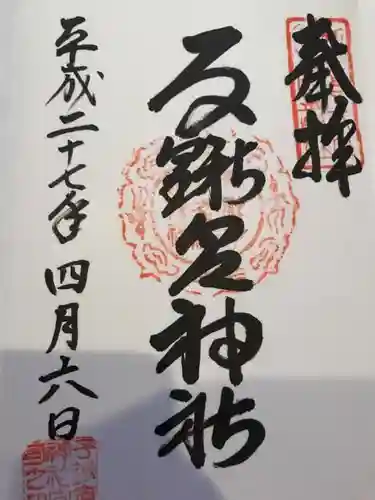 奉拝
子鍬倉神社
平成二十七年四月六日